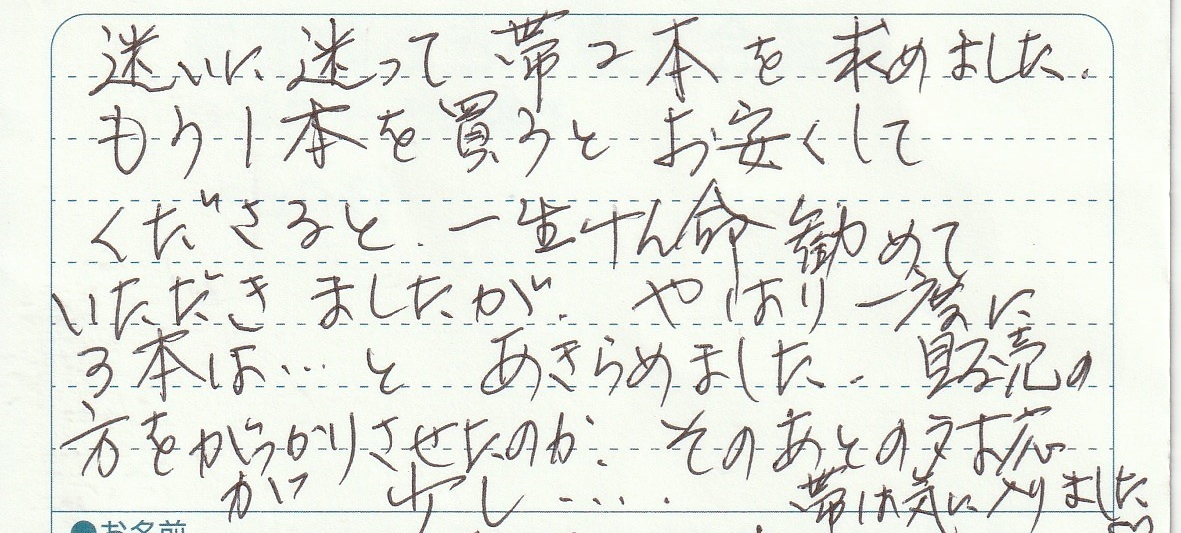 迷いに迷って帯2本を求めました.
もう1本を買うとお安くして
くださると.一生けん命勧めて
いただきましたが.やはり一度に
3本は…とあきらめました.販売の
方をがっかりさせたのか.そのあとの対応
が 少し‥‥.
帯は気に入りました
●お名前